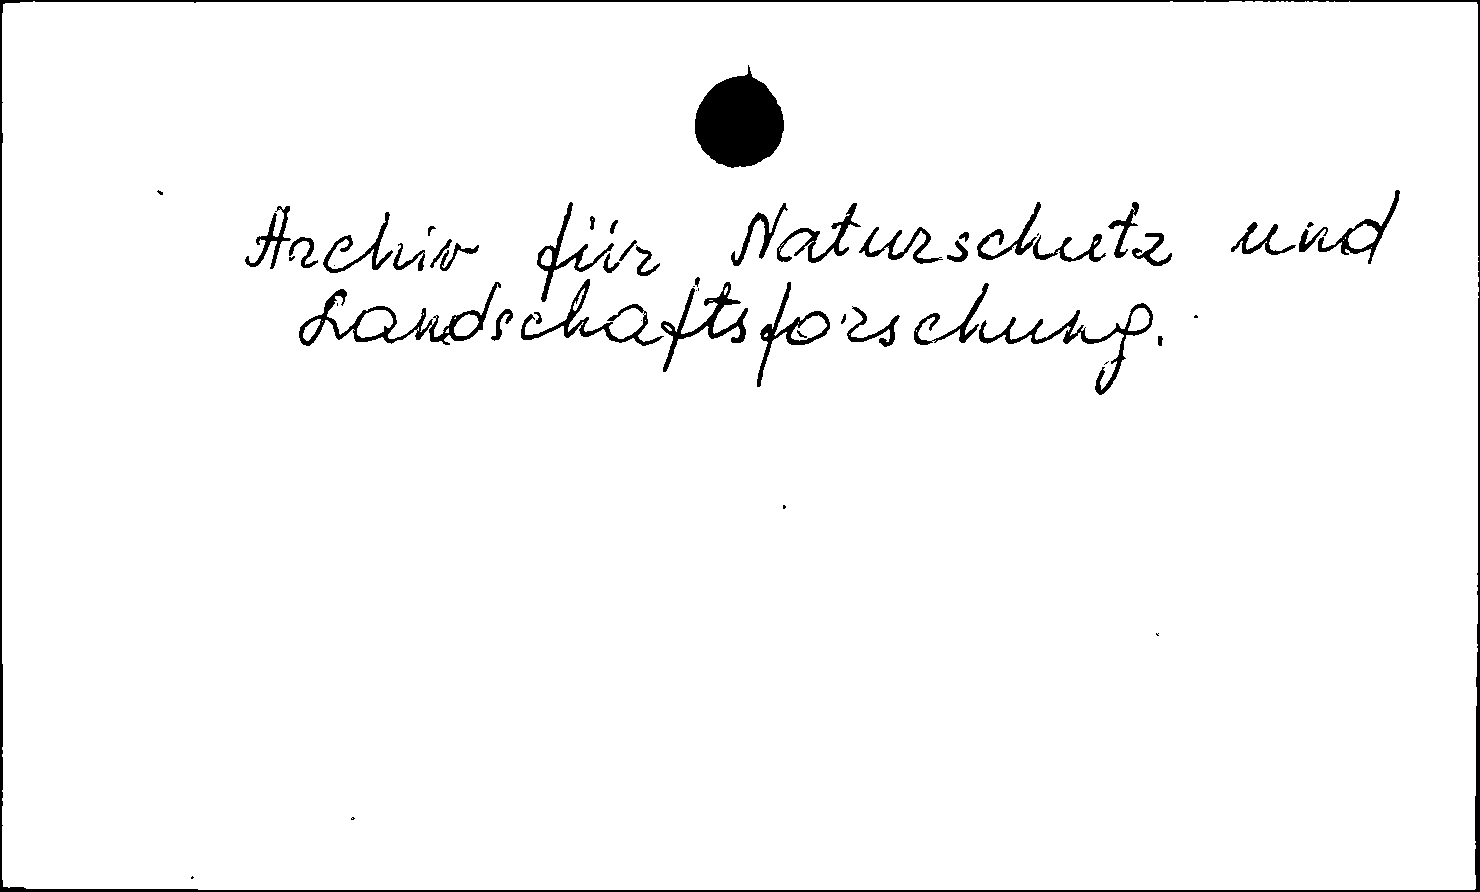 Archiv für Naturschutz und
Landschaftsforschung.